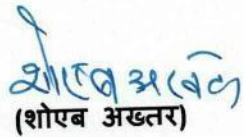 शोएब अख्तर
(शोएब अख्तर)